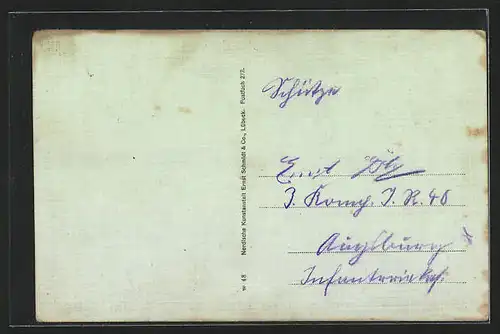 Nordische Kunstanstalt Ernst Schmidt & Co., Lübeck. Postfach 273.
w 48
Schütze
Ernst
3. Komp. I. R. 40
Augsburg
Infanterie